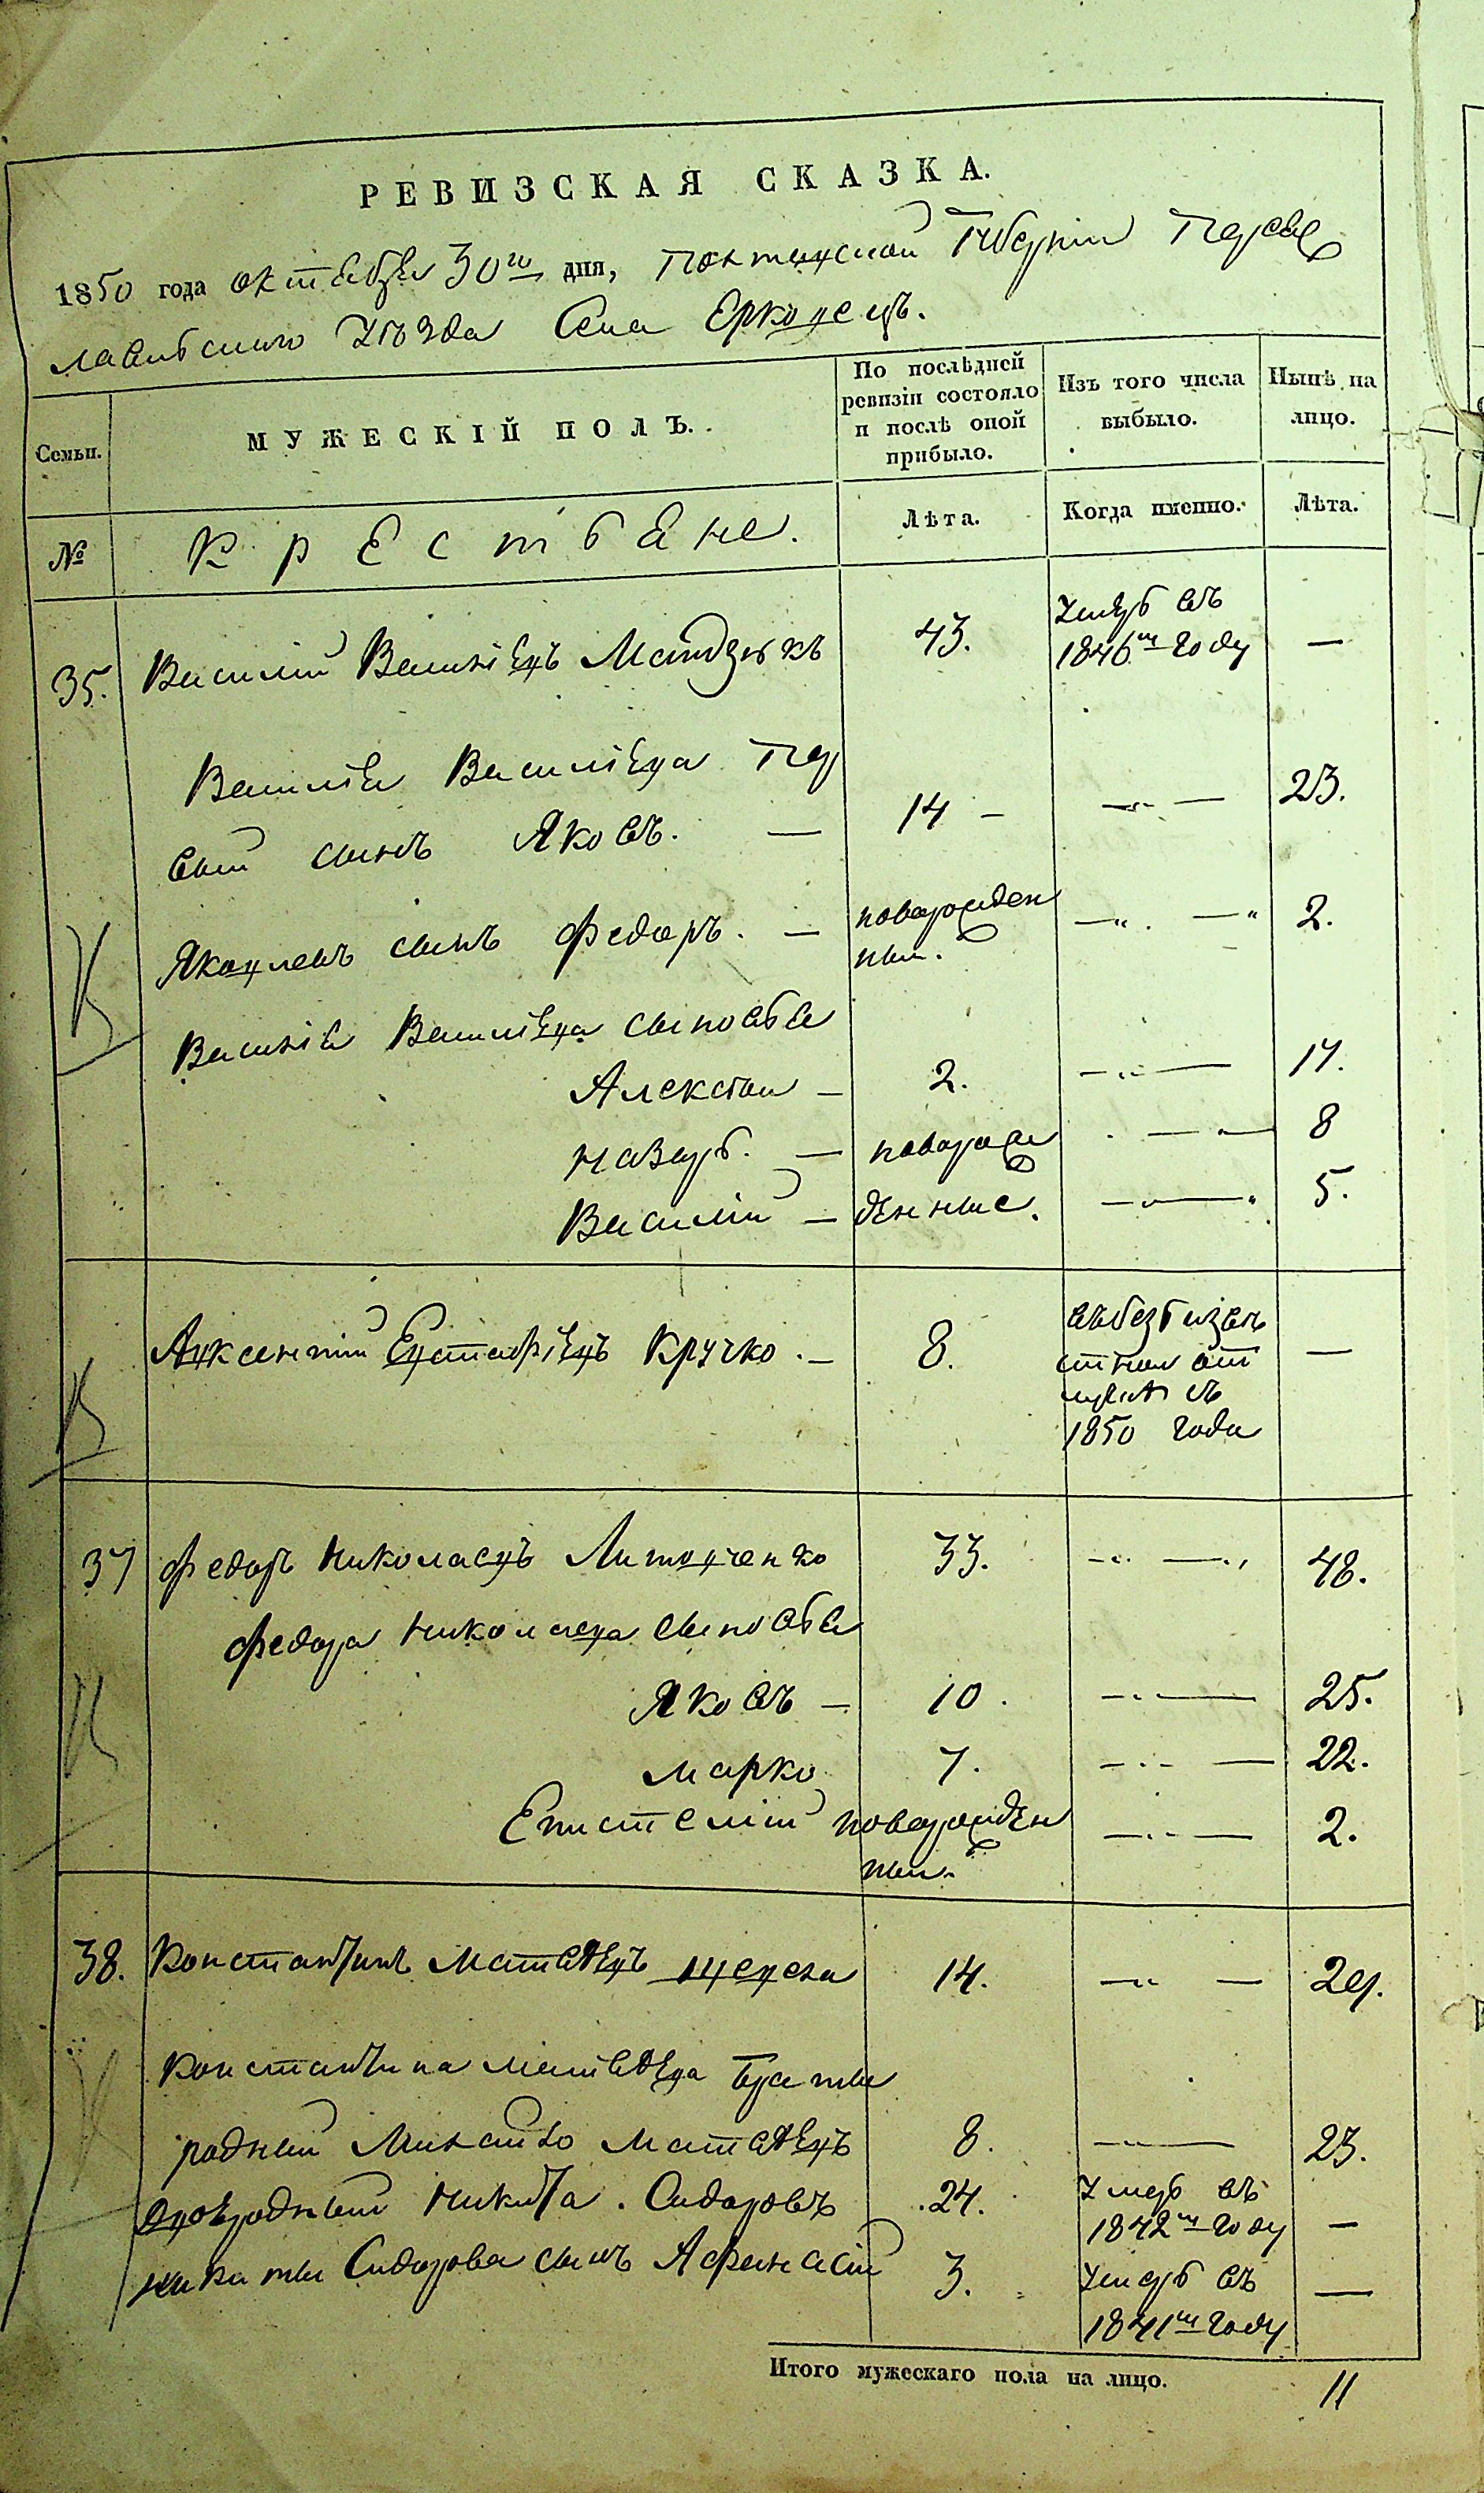 РЕВИЗСКАЯ СКАЗКА.
1850 года октября 30го дня, Полтавской Губерніи Перея
лавскаго Уѣзда Села Ерковецъ.
Семьи.
МУЖЕСКІЙ ПОЛЪ.
По послѣдней
ревизіи состояло
и послѣ оной
прибыло.
Изъ того числа
выбыло.
Нынѣ на
лицо.
№
Крестьяне.
Лѣта.
Когда именно.
Лѣта.
35. Василій Васильевъ 43. Умеръ въ
1846м году —
Василія Васильева пер
вый сынъ Яковъ. — 14 — — 23.
Яковлевъ сынъ Федоръ. — новорожден
ный. — — 2.
Василія Васильева сыновья
Алексѣй — 2. — 17.
Назаръ. — новорож — 8
Василій — денные. — 5.
Авксентій Евстафіевъ Кручко. — 8. въ безъизвѣ
стной от
лучкѣ съ
1850 года —
37 Федоръ Николаевъ Литовченко 33. — — 48.
Федора Николаева сыновья
Яковъ — 10. — 25.
Марко 7. — — 22.
Епистемій новорожден
ный. — — 2.
38. Константинъ Матвѣевъ 14. — — 29.
Константина Матвѣева братья
родный Михайло Матвѣевъ 8. — 23.
двоюродный Никита Сидоровъ 24. Умеръ въ
1842м году —
Никиты Сидорова сынъ Афанасій 3. Умеръ въ
1841м году —
Итого мужескаго пола на лицо. 11